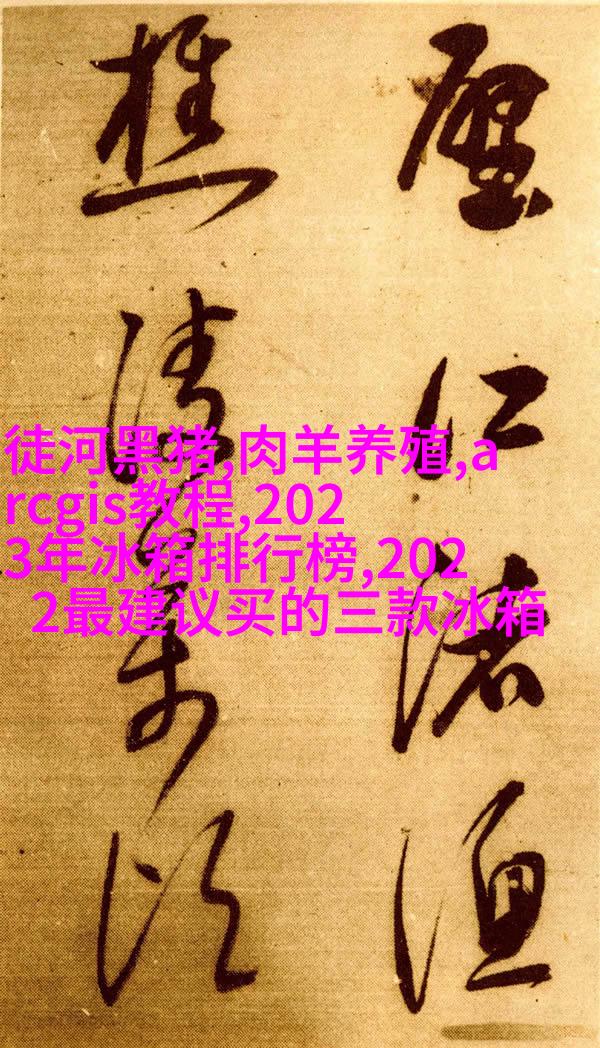 徒河黑猪,肉羊养殖,a
rcgis教程,202
3年冰箱排行榜,202
2最建议买的三款冰箱
江渚漁
樵清